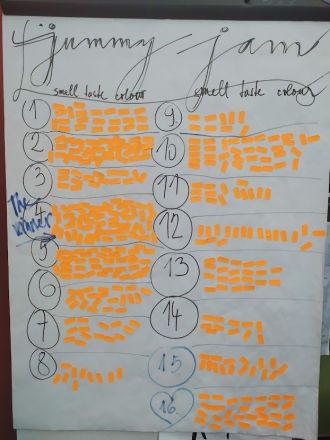 jummy - jam
smell taste colour
smell taste colour
1
2
3
4
The winner
5
6
7
8
9
10
11
12
13
14
15
16